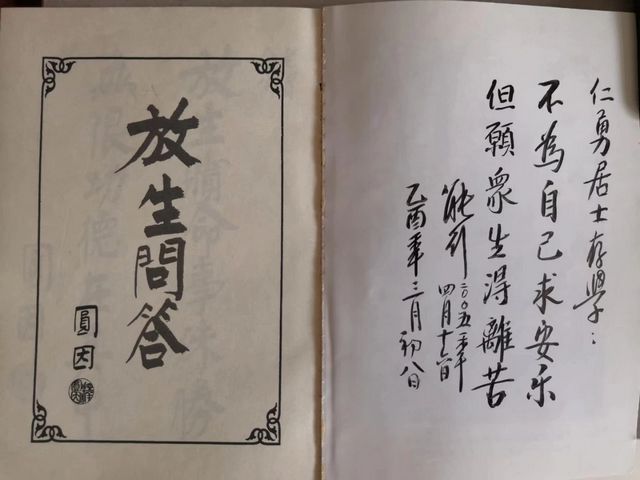 仁勇居士存學：
不為自己求安乐
但願眾生得離苦
二〇〇五年
四月十六日
乙酉年三月初八日
放生問答
圓因